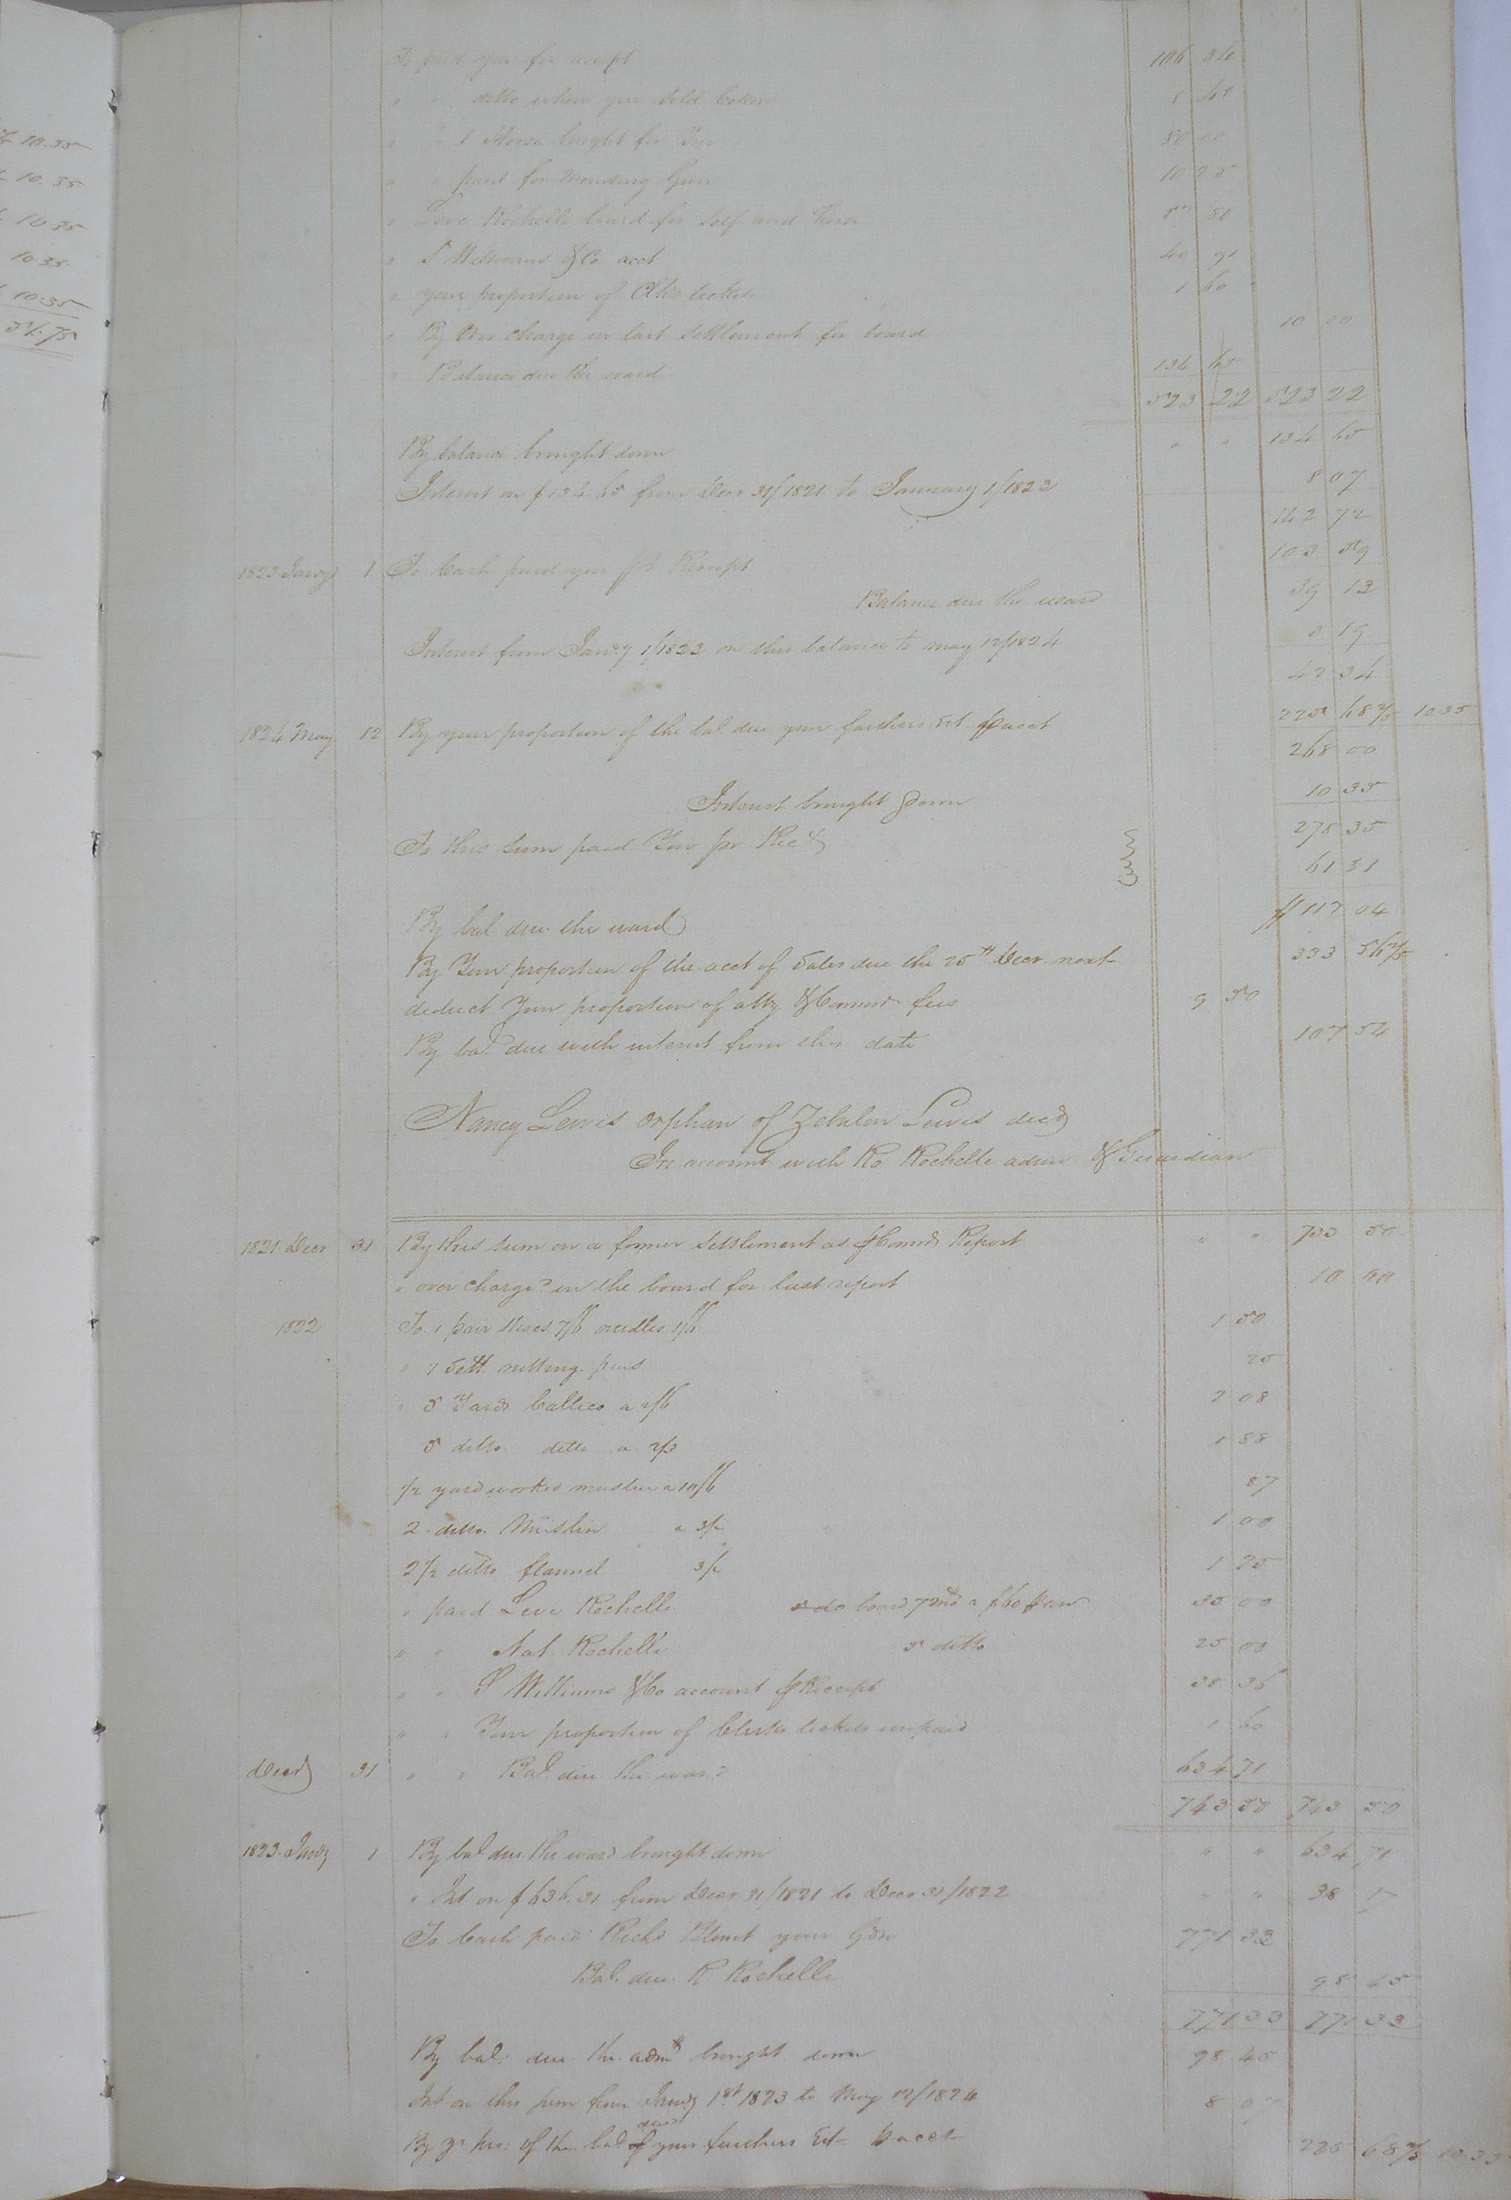 10.35
10.35
10.35
10.35
10.35
51.75
To paid you for receipt 106 36
" " ditto when you sold Cotton 5 48
" " 1 Horse bought for You 80 00
" " paid for Mending Gun
" Levi Rochelle board for Self and horse
" S Williams & Co acct 40 91
" your proportion of Clks tickets 1 60
" By Over charge in last settlement for board 10 00
" Balance due the ward 134 65
523 22 523 22
By balance brought down " " 134 65
Interest on $134.65 from Decr 31/1821 to January 1/1823 8 07
142 72
1823 Jany 1 To Cash paid you pr Receipt 103 59
Balance due the ward 39 13
Interest from Jany 1/1823 on this balance to may 12/1824 3 19
42 34
1824 May 12 By your proportion of the bal due your fathers Est pr acct 225 68 2/5 10.35
268 00
Interest brought down 10 35
278 35
To this sum paid You pr Rect 61 31
By bal due the ward $117 04
By Your proportion of the acct of Sales due the 25th Decr next 333 56 2/5
deduct Your proportion of atty & Commr fees 9 50
By bal due with interest from this date 107 54
Nancy Lewis orphan of Zebulon Lewis decd
In account with Ro Rochelle admr & Guardian
1821 Decr 31 By this sum on a former settlement as pr Commrs Report " " 733 50
" over charge in the board for last report 10 00
1822 To 1 pair Shoes 7/6 needles 1/6 1 50
" 1 Sett nitting pins 25
" 5 Yards Callico a 2/6 2 08
5 ditto ditto a 2/3 1 88
1/2 yard worked muslin a 10/6 87
2 ditto Muslin a 3/ 1 00
2 1/2 ditto flannel 3/ 1 25
" paid Levi Rochelle do board 7 mo a $60 pr an 35 00
" " Nat. Rochelle 5 ditto 25 00
" " S Williams & Co account pr Receipt 38 36
" " Your proportion of Clerks tickets unpaid 1 60
Decr 31 " " Bal due the ward 634 71
743 50 743 50
1823 Jany 1 By bal due the ward brought down " " 634 71
" Int on $636.31 from Decr 31/1821 to Decr 31/1822 " " 38 17
To Cash paid Richd Blount your Gdn 771 33
Bal. due R Rochelle 98 45
771 33 771 33
By bal due the admr brought down 98 45
Int on this sum from Jany 1st 1823 to May 12/1824 8 07
By yr pro: of the bal of due your fathers Est pr acct 225 68 2/5 10 35